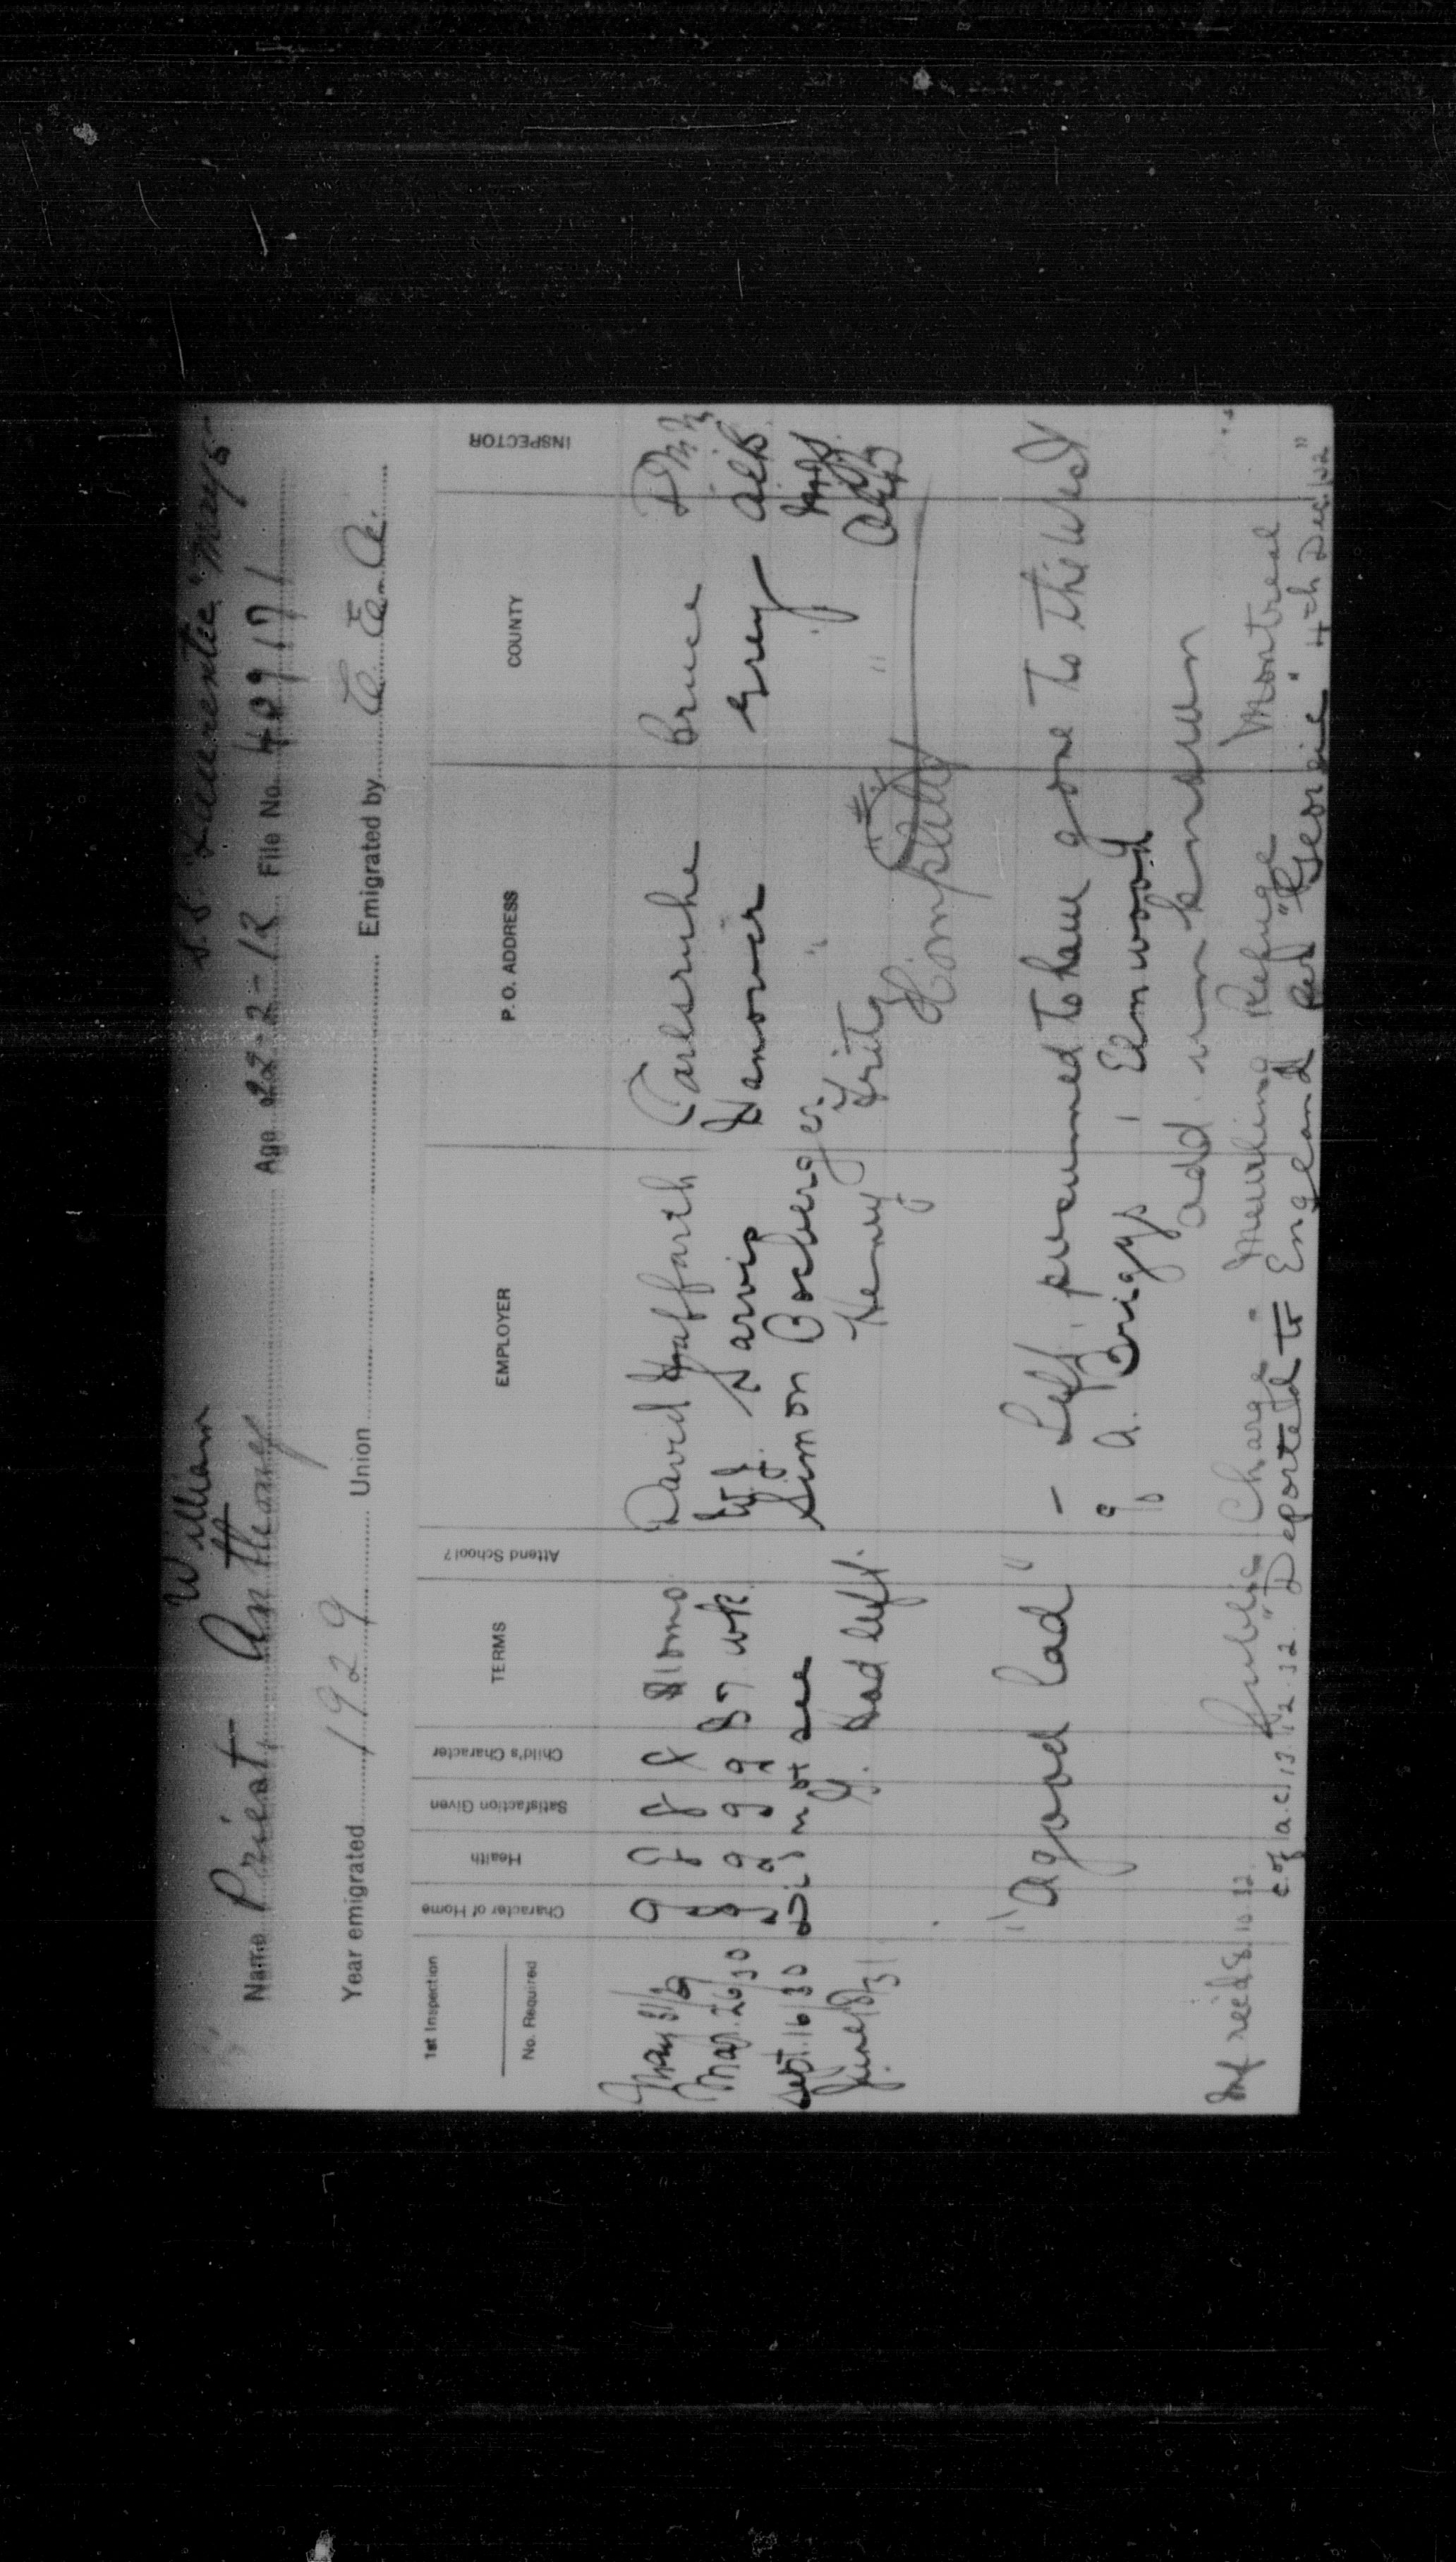 S.S. Laurentic May 5
William
Name Priest, Anthony Age 22-2-12 File No. 40917/1
Year emigrated 1929 Union Emigrated by C. E. A.
1st Inspection No. Required Character of Home Health Satisfaction Given Child's Character TERMS Attend School? EMPLOYER P. O. ADDRESS COUNTY INSPECTOR
May 31/29 g g g g $10 mo. David Haffarth Carlsruhe Bruce
Mar. 26/30 g g g g $7 wk. W. J. Jarvis Hanover Grey
Sept. 16/30 Did not see Simon Bocberger " "
June 18/31 G. Had left. Henry Fritz "
Completed
"A good lad" - Left, presumed to have gone to the West
% A. Briggs, Elmwood
add. unknown
Inf rec'd 8.10.32. Public Charge - Meurling Refuge Montreal
c. of a.c. 13.12.32. "Deported to England per "Georgic" 4th Dec/32"